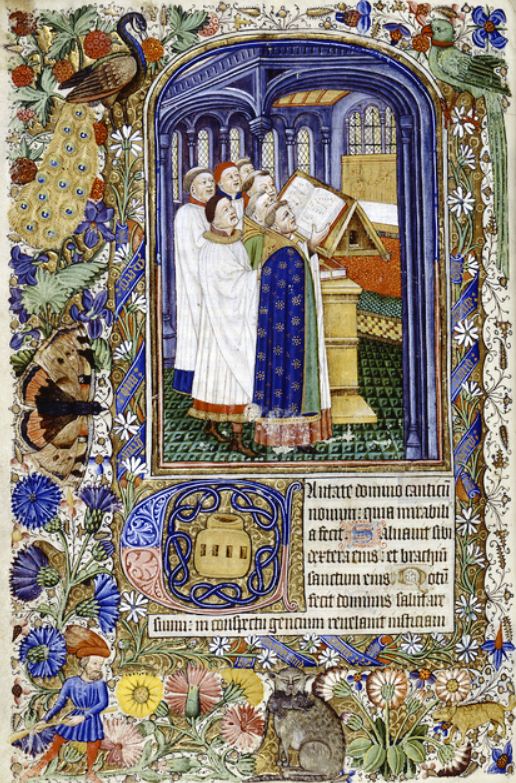 CAntate domino canticū
nouum: quia mirabili
a fecit. Saluauit sibi
dextera eius: et brachiū
sanctum eius. Notū
fecit dominus salutare
suum: in conspectu gencium reuelauit iusticiam